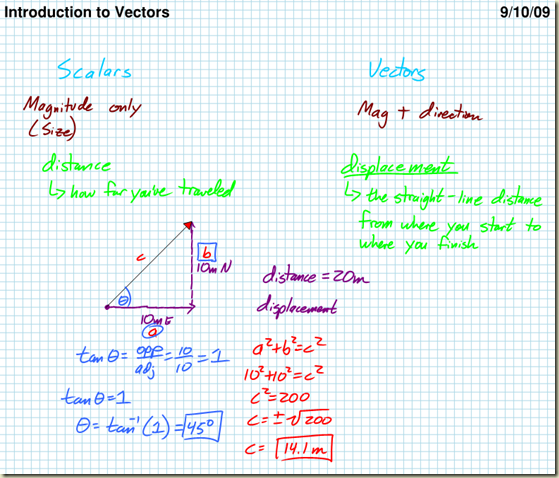 Introduction to Vectors 9/10/09
Scalars
Vectors
Magnitude only
(Size)
Mag + direction
distance
↳ how far you've traveled
displacement
↳ the straight-line distance
from where you start to
where you finish
c
b
10m N
θ
10m E
a
distance = 20m
displacement
tan θ = opp/adj = 10/10 = 1
tan θ = 1
θ = tan⁻¹(1) = 45°
a² + b² = c²
10² + 10² = c²
c² = 200
c = ±√200
c = 14.1 m